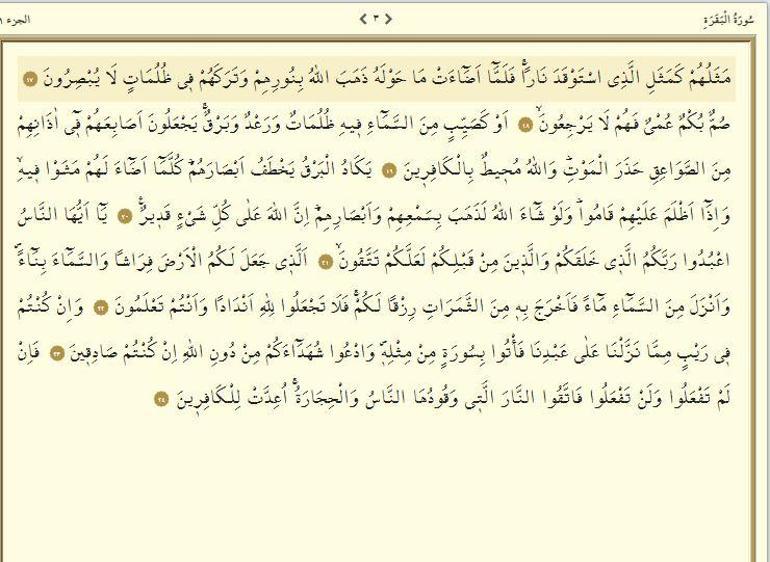 سُورَةُ الْبَقَرَةِ
٣
الجزء ١
مَثَلُهُمْ كَمَثَلِ الَّذِى اسْتَوْقَدَ نَارًاۚ فَلَمَّٓا اَضَٓاءَتْ مَا حَوْلَهُ ذَهَبَ اللّٰهُ بِنُورِهِمْ وَتَرَكَهُمْ فٖى ظُلُمَاتٍ لَا يُبْصِرُونَ ١٧
صُمٌّ بُكْمٌ عُمْىٌ فَهُمْ لَا يَرْجِعُونَۙ ١٨ اَوْ كَصَيِّبٍ مِنَ السَّمَٓاءِ فٖيهِ ظُلُمَاتٌ وَرَعْدٌ وَبَرْقٌۚ يَجْعَلُونَ اَصَابِعَهُمْ فٖٓى اٰذَانِهِمْ
مِنَ الصَّوَاعِقِ حَذَرَ الْمَوْتِؕ وَاللّٰهُ مُحٖيطٌ بِالْكَافِرٖينَ ١٩ يَكَادُ الْبَرْقُ يَخْطَفُ اَبْصَارَهُمْؕ كُلَّمَٓا اَضَٓاءَ لَهُمْ مَشَوْا فٖيهِۙ
وَاِذَٓا اَظْلَمَ عَلَيْهِمْ قَامُواؕ وَلَوْ شَٓاءَ اللّٰهُ لَذَهَبَ بِسَمْعِهِمْ وَاَبْصَارِهِمْؕ اِنَّ اللّٰهَ عَلٰى كُلِّ شَىْءٍ قَدٖيرٌۚ ٢٠ يَٓا اَيُّهَا النَّاسُ
اعْبُدُوا رَبَّكُمُ الَّذٖى خَلَقَكُمْ وَالَّذٖينَ مِنْ قَبْلِكُمْ لَعَلَّكُمْ تَتَّقُونَۙ ٢١ اَلَّذٖى جَعَلَ لَكُمُ الْاَرْضَ فِرَاشًا وَالسَّمَٓاءَ بِنَٓاءًࣕ
وَاَنْزَلَ مِنَ السَّمَٓاءِ مَٓاءً فَاَخْرَجَ بِهٖ مِنَ الثَّمَرَاتِ رِزْقًا لَكُمْۚ فَلَا تَجْعَلُوا لِلّٰهِ اَنْدَادًا وَاَنْتُمْ تَعْلَمُونَ ٢٢ وَاِنْ كُنْتُمْ
فٖى رَيْبٍ مِمَّا نَزَّلْنَا عَلٰى عَبْدِنَا فَأْتُوا بِسُورَةٍ مِنْ مِثْلِهٖࣕ وَادْعُوا شُهَدَٓاءَكُمْ مِنْ دُونِ اللّٰهِ اِنْ كُنْتُمْ صَادِقٖينَ ٢٣ فَاِنْ
لَمْ تَفْعَلُوا وَلَنْ تَفْعَلُوا فَاتَّقُوا النَّارَ الَّتٖى وَقُودُهَا النَّاسُ وَالْحِجَارَةُۚ اُعِدَّتْ لِلْكَافِرٖينَ ٢٤